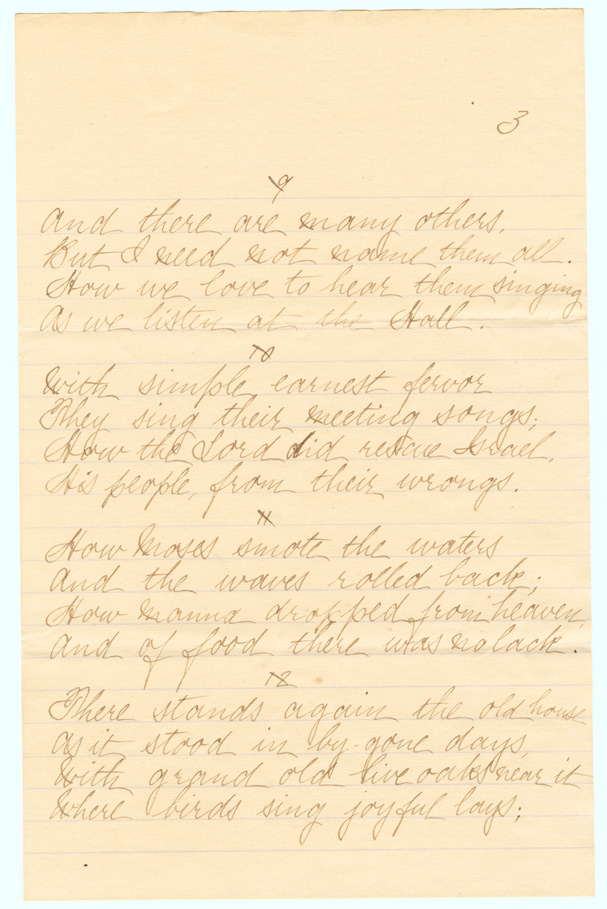 3
9
And there are many others,
But I need not name them all.
How we love to hear them singing
As we listen at the Hall.
10
With simple, earnest fervor
They sing their meeting songs;
How the Lord did rescue Israel,
His people, from their wrongs.
11
How Moses smote the waters
And the waves rolled back;
How manna dropped from heaven,
And of food there was no lack.
12
There stands again the old house
As it stood in by-gone days,
With grand old live oaks near it
Where birds sing joyful lays;